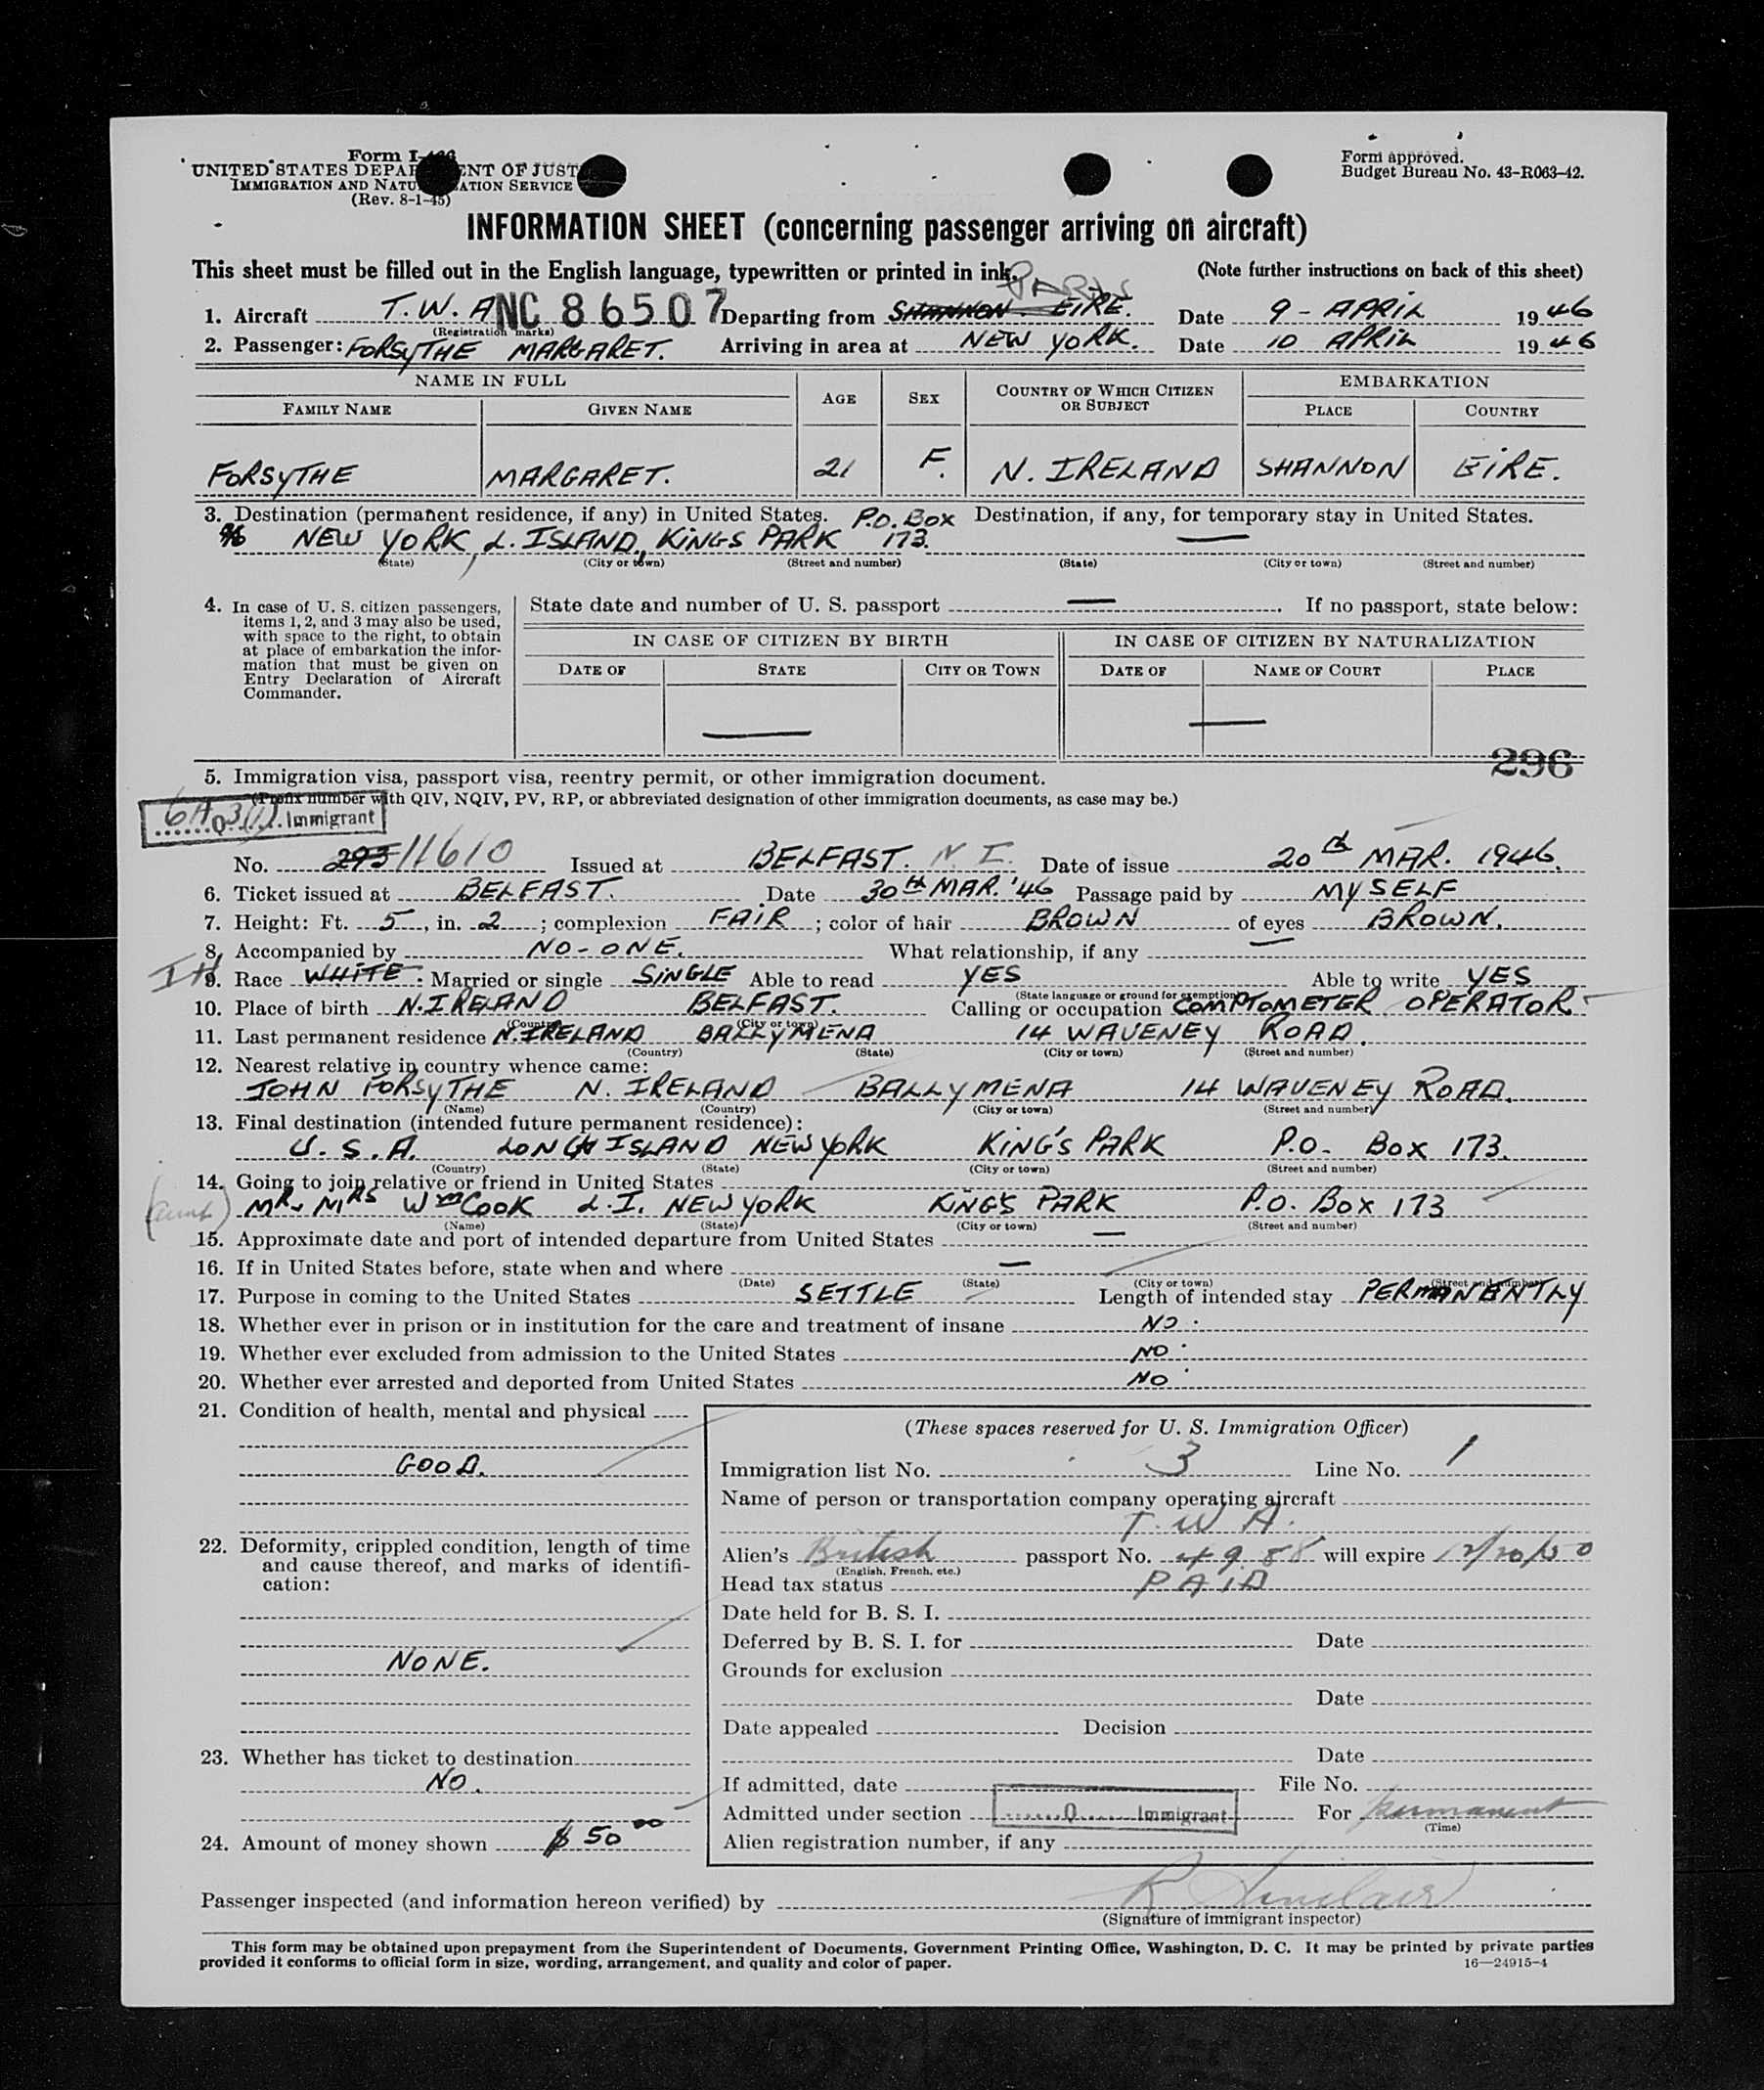 Form I-466
UNITED STATES DEPARTMENT OF JUSTICE
IMMIGRATION AND NATURALIZATION SERVICE
(Rev. 8-1-45)
Form approved.
Budget Bureau No. 43-R063-42.
INFORMATION SHEET (concerning passenger arriving on aircraft)
This sheet must be filled out in the English language, typewritten or printed in ink. (Note further instructions on back of this sheet)
PARIS
1. Aircraft T.W.A NC 86507 Departing from SHANNON EIRE. Date 9 - APRIL 1946
(Registration marks)
2. Passenger: FORSYTHE MARGARET. Arriving in area at NEW YORK. Date 10 APRIL 1946
NAME IN FULL AGE SEX COUNTRY OF WHICH CITIZEN OR SUBJECT EMBARKATION
FAMILY NAME GIVEN NAME PLACE COUNTRY
FORSYTHE MARGARET. 21 F. N. IRELAND SHANNON EIRE.
3. Destination (permanent residence, if any) in United States. Destination, if any, for temporary stay in United States.
% NEW YORK, L. ISLAND, KINGS PARK P.O. Box 173. —
(State) (City or town) (Street and number) (State) (City or town) (Street and number)
4. In case of U. S. citizen passengers,
items 1, 2, and 3 may also be used,
with space to the right, to obtain
at place of embarkation the infor-
mation that must be given on
Entry Declaration of Aircraft
Commander.
State date and number of U. S. passport — . If no passport, state below:
IN CASE OF CITIZEN BY BIRTH IN CASE OF CITIZEN BY NATURALIZATION
DATE OF STATE CITY OR TOWN DATE OF NAME OF COURT PLACE
— —
296
5. Immigration visa, passport visa, reentry permit, or other immigration document.
(Prefix number with QIV, NQIV, PV, RP, or abbreviated designation of other immigration documents, as case may be.)
Q Immigrant
No. 293 11610 Issued at BELFAST. N.I. Date of issue 20th MAR. 1946.
6. Ticket issued at BELFAST. Date 30th MAR. '46 Passage paid by MYSELF
7. Height: Ft. 5, in. 2; complexion FAIR; color of hair BROWN of eyes BROWN.
8. Accompanied by NO-ONE. What relationship, if any —
9. Race WHITE: Married or single SINGLE Able to read YES Able to write YES
(State language or ground for exemption)
10. Place of birth N.IRELAND BELFAST. Calling or occupation COMPTOMETER OPERATOR
(Country) (City or town)
11. Last permanent residence N.IRELAND BALLYMENA 14 WAVENEY ROAD.
(Country) (State) (City or town) (Street and number)
12. Nearest relative in country whence came:
JOHN FORSYTHE N. IRELAND BALLYMENA 14 WAVENEY ROAD.
(Name) (Country) (City or town) (Street and number)
13. Final destination (intended future permanent residence):
U.S.A. LONG ISLAND NEW YORK KING'S PARK P.O. Box 173.
(Country) (State) (City or town) (Street and number)
14. Going to join relative or friend in United States
(aunt) MR. MRS Wm COOK L.I. NEW YORK KING'S PARK P.O. Box 173
(Name) (State) (City or town) (Street and number)
15. Approximate date and port of intended departure from United States —
16. If in United States before, state when and where —
(Date) (State) (City or town) (Street and number)
17. Purpose in coming to the United States SETTLE Length of intended stay PERMANENTLY
18. Whether ever in prison or in institution for the care and treatment of insane NO.
19. Whether ever excluded from admission to the United States NO.
20. Whether ever arrested and deported from United States NO.
21. Condition of health, mental and physical
GOOD.
22. Deformity, crippled condition, length of time
and cause thereof, and marks of identifi-
cation:
NONE.
23. Whether has ticket to destination
NO.
24. Amount of money shown $50 00
(These spaces reserved for U. S. Immigration Officer)
Immigration list No. 3 Line No. 1
Name of person or transportation company operating aircraft
T.W.A.
Alien's British passport No. 4988 will expire 12/20/50
(English, French, etc.)
Head tax status PAID
Date held for B. S. I.
Deferred by B. S. I. for Date
Grounds for exclusion
Date
Date appealed Decision
Date
If admitted, date File No.
Admitted under section Q Immigrant For permanent
(Time)
Alien registration number, if any
Passenger inspected (and information hereon verified) by R. Sinclair
(Signature of immigrant inspector)
This form may be obtained upon prepayment from the Superintendent of Documents, Government Printing Office, Washington, D. C. It may be printed by private parties
provided it conforms to official form in size, wording, arrangement, and quality and color of paper. 16—24915-4